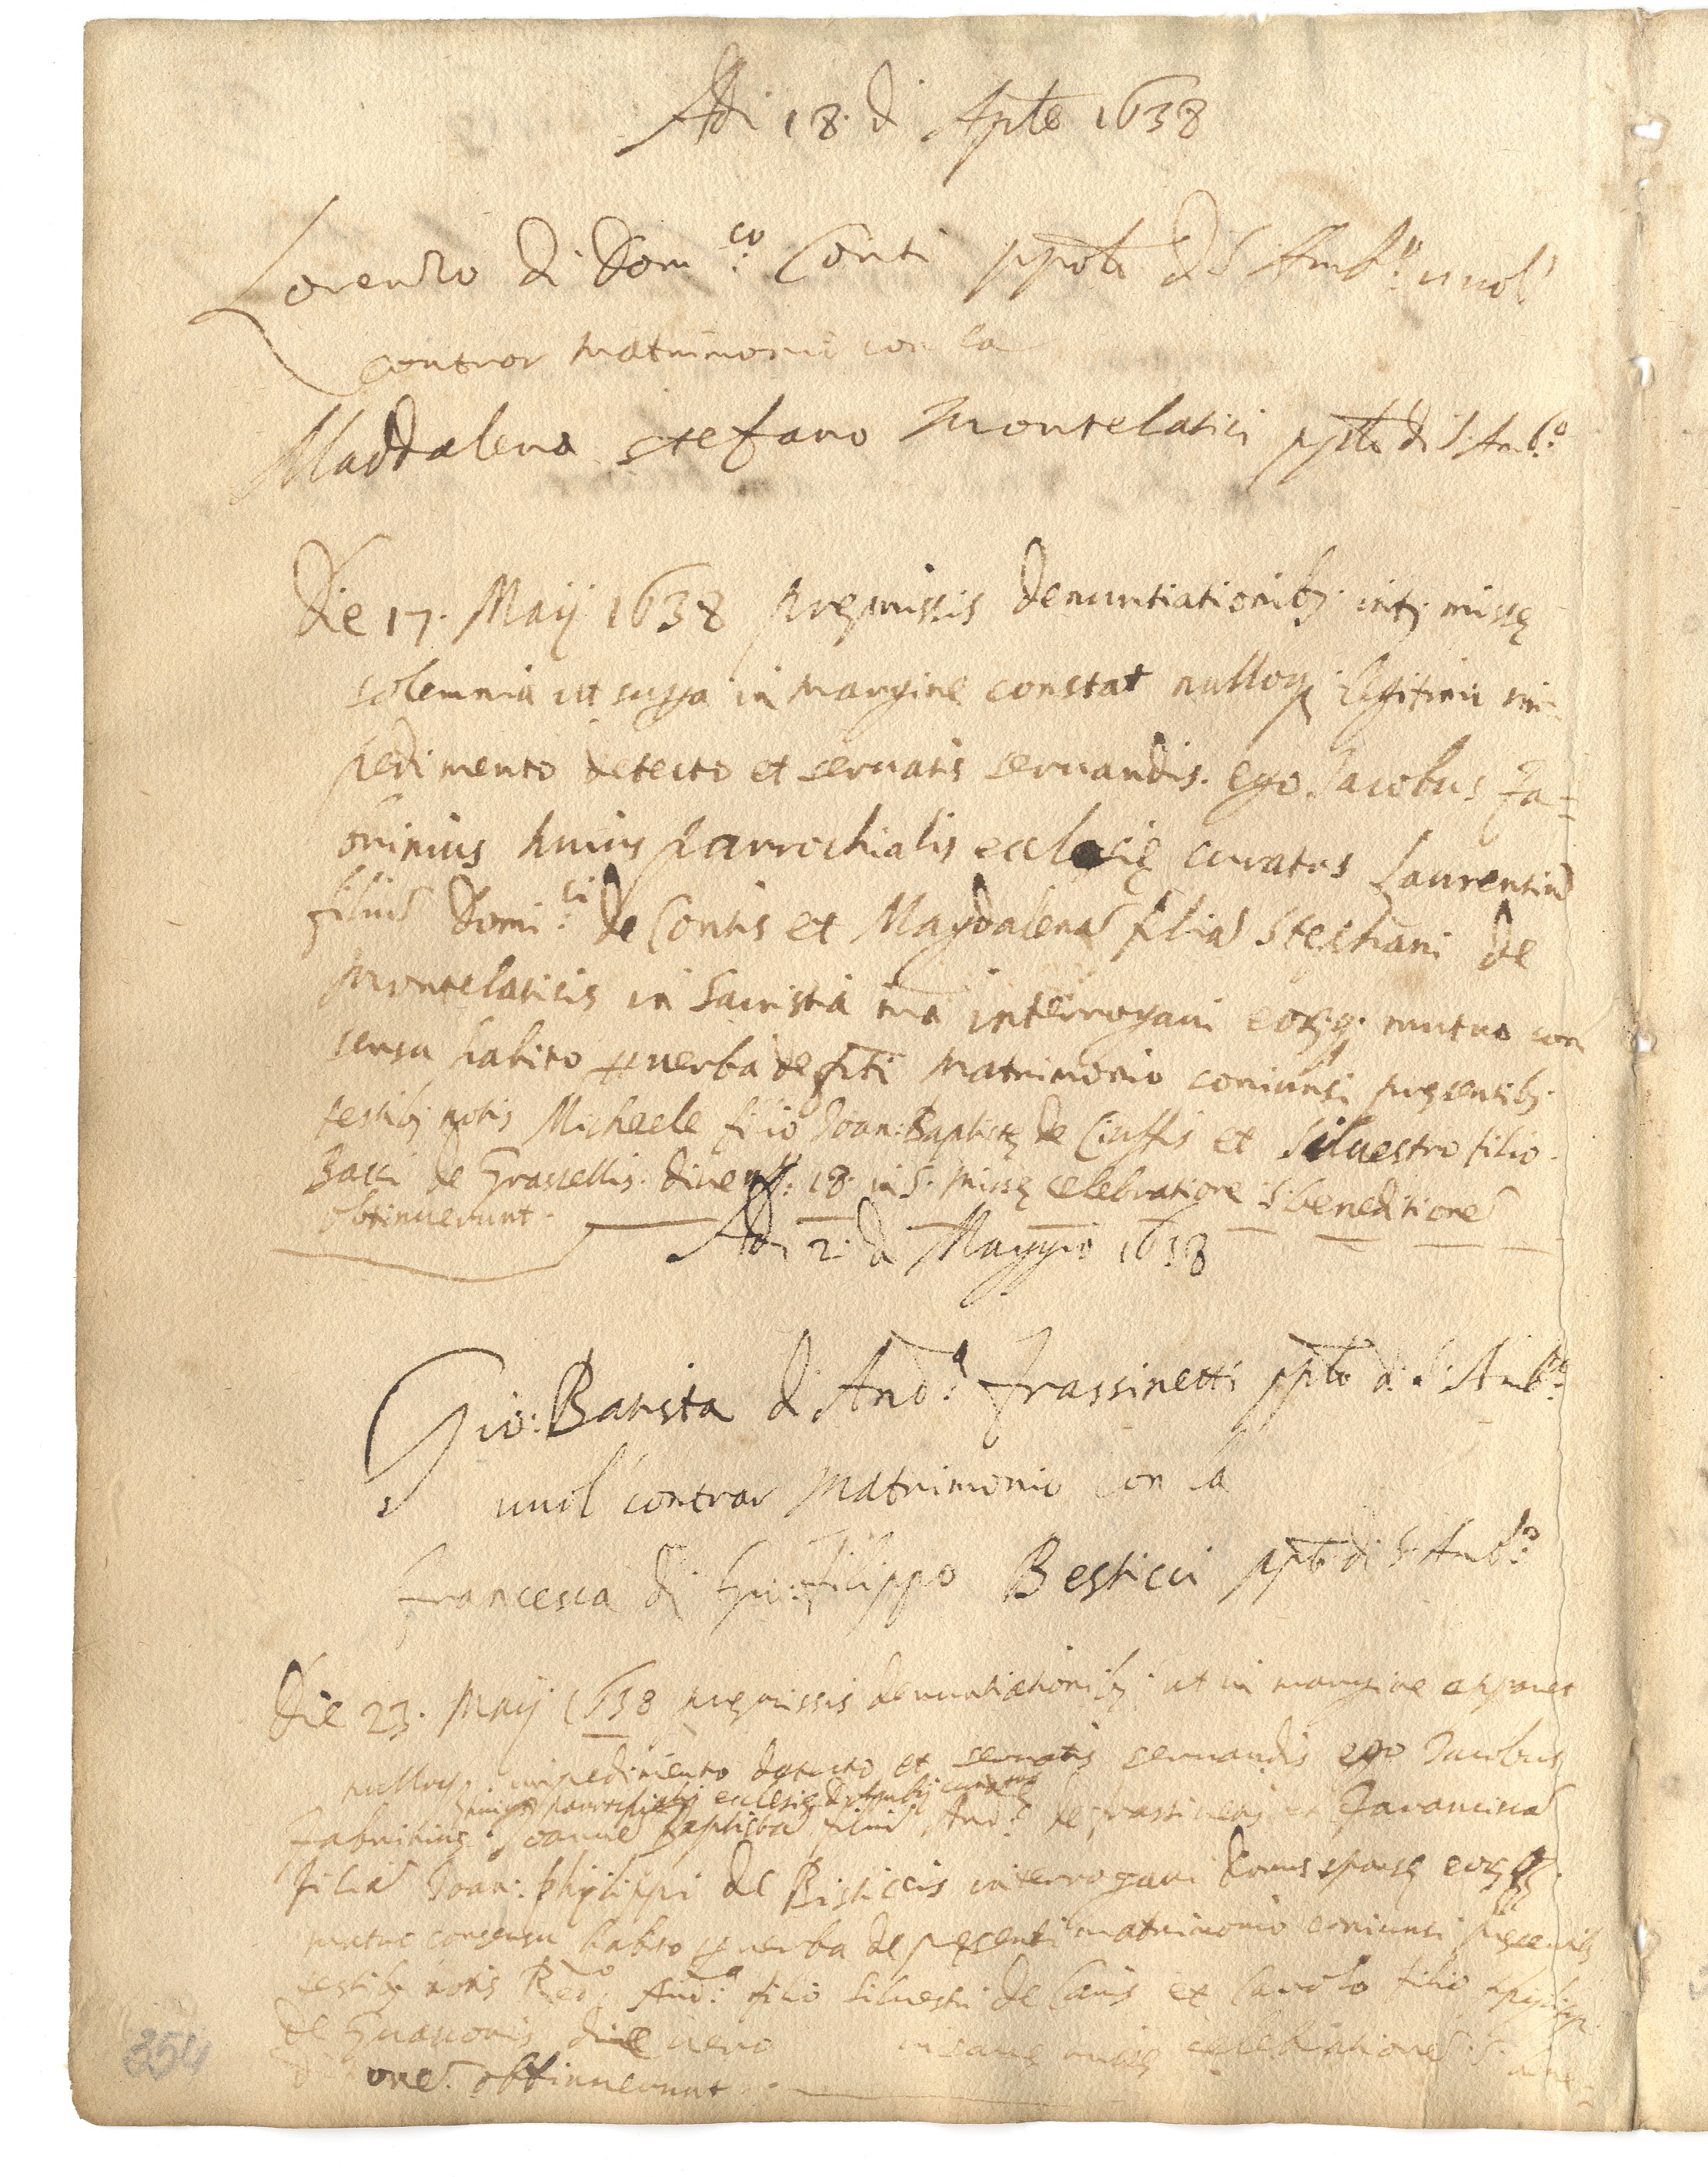 Adi 18. di Aprle 1638
Lorenzo di Dom.co Conti ppolo di S. Amb.o vuol
contrar matrimonio con la
Maddalena Stefano Montelatici pplo di S. Amb.o
Die 17. Maij 1638 premissis denuntiationib; int; missę
solemnia ut supra in margine constat nulloq; legitimo im-
pedimento detecto et servatis servandis. ego Jacobus Fa=
brinius huius parrochialis ecclesię curatus Laurentiũ
filiũ Domi.ci de Contis et Magdalenã filiã Stephani de
Montelaticis in Sacristia mea interrogavi eor;q; mutuo con
sensu habito p verba de pñti matrimonio coniunsi pręsentib;
testib; notis Michaele filio Joan: Baptistę de Ciuffis et Silvestro filio
Batti de Grassellis. die 18. in S. missę celebratione S. beneditionẽ
obtinuerunt.
Adi 2. di Maggio 1638
Gio: Batista di And.a Frassinetti pplo di S. Amb.o
vuol contrar matrimonio con la
Francesca di Gio: Filippo Besticci pplo di S. Amb.o
Die 23. Maij 1638 pręmissis denuntiationib; ut in margine apparet
nulloq; impedimento detecto et servatis servandis ego Jacobus
huius parrochialis ecclesię S. Ambrosij curatus
Fabrinius Joannẽ Baptistã filiũ And.ę de Frassinettis et Franciscã
filiã Joan: Philippi de Bisticcis interrogavi domus sponsę eor;q;
mutuo consensu habito p verba de pręsenti matrimonio coniunsi pręsentib;
testib; notis Red.o And.a filio Silvestri de Cavis et Carolo filio Philippi
de die vero in sanctę missę celebrationẽ S. bene=
di onẽ obtinuerunt.
354